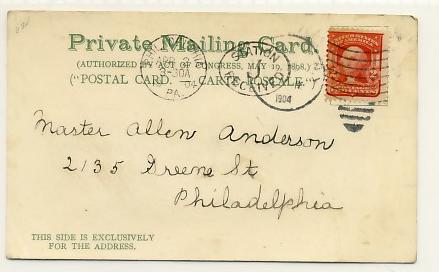 Private Mailing Card.
(AUTHORIZED BY ACT OF CONGRESS, MAY 19, 1898.)
("POSTAL CARD. — CARTE POSTALE.")
PA.
STATION
RECEIVED
1904
Master Allen Anderson
2135 Greene St
Philadelphia
THIS SIDE IS EXCLUSIVELY
FOR THE ADDRESS.